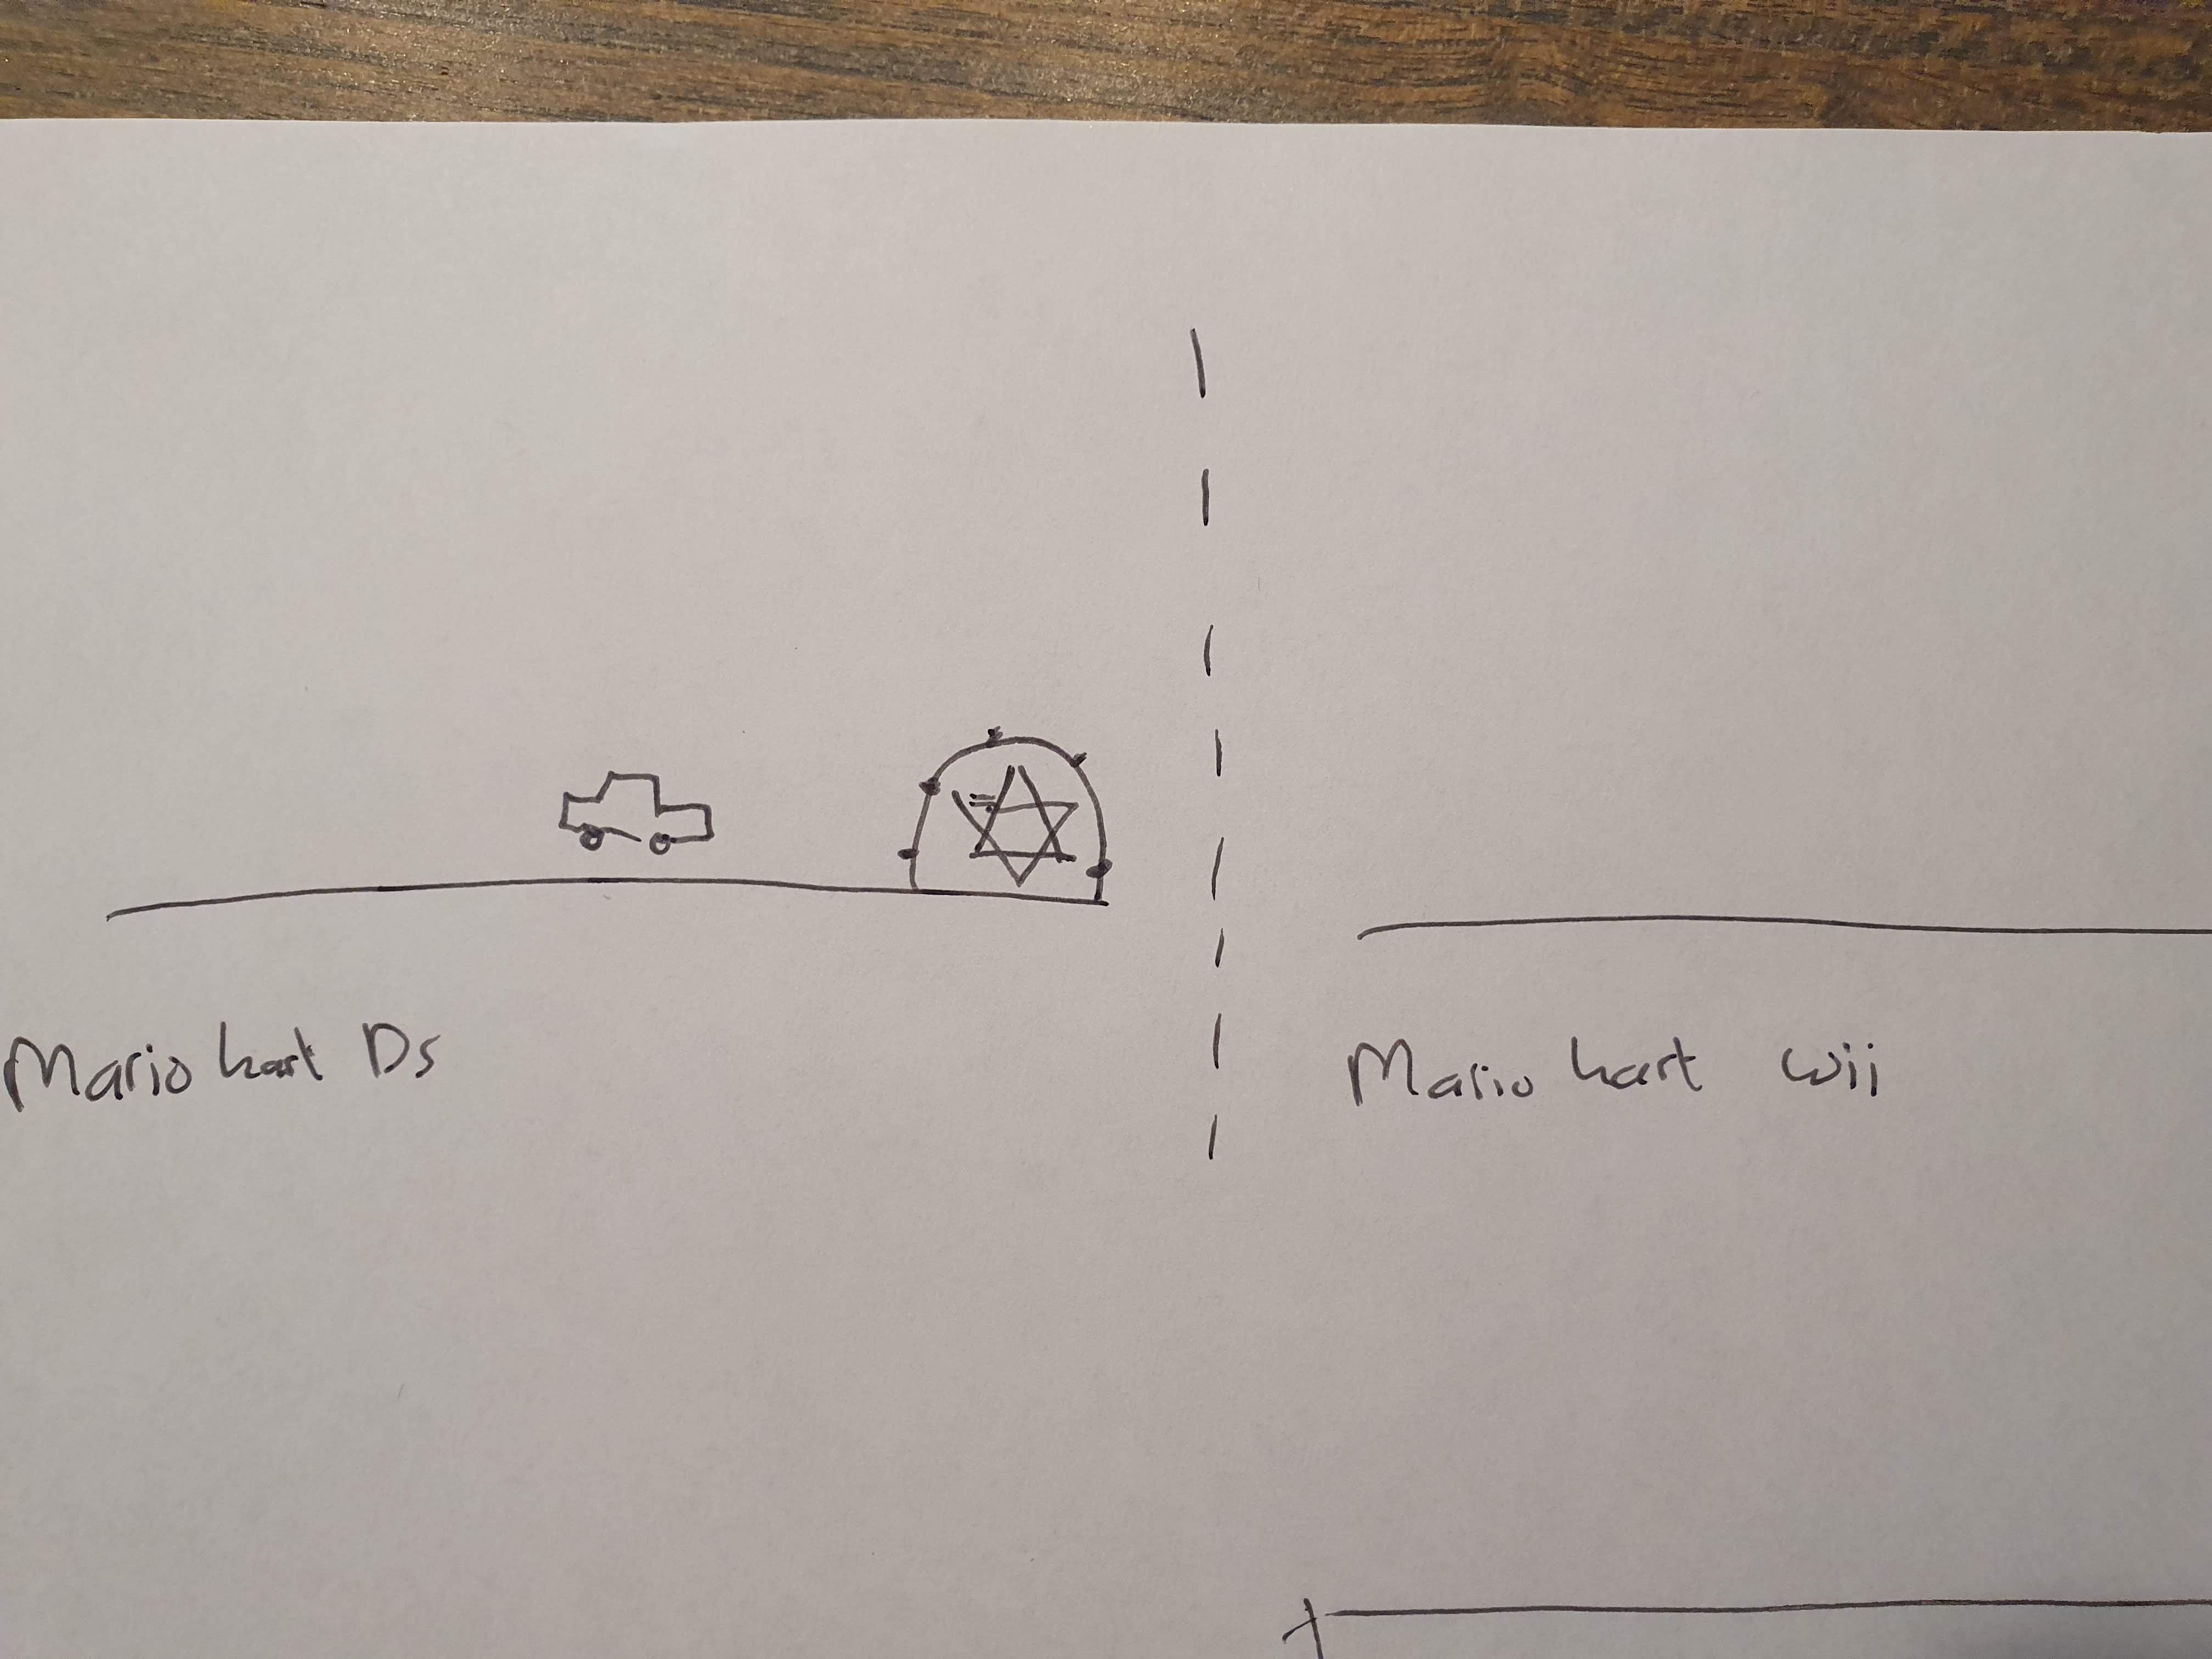 Mario kart Ds
Mario kart wii